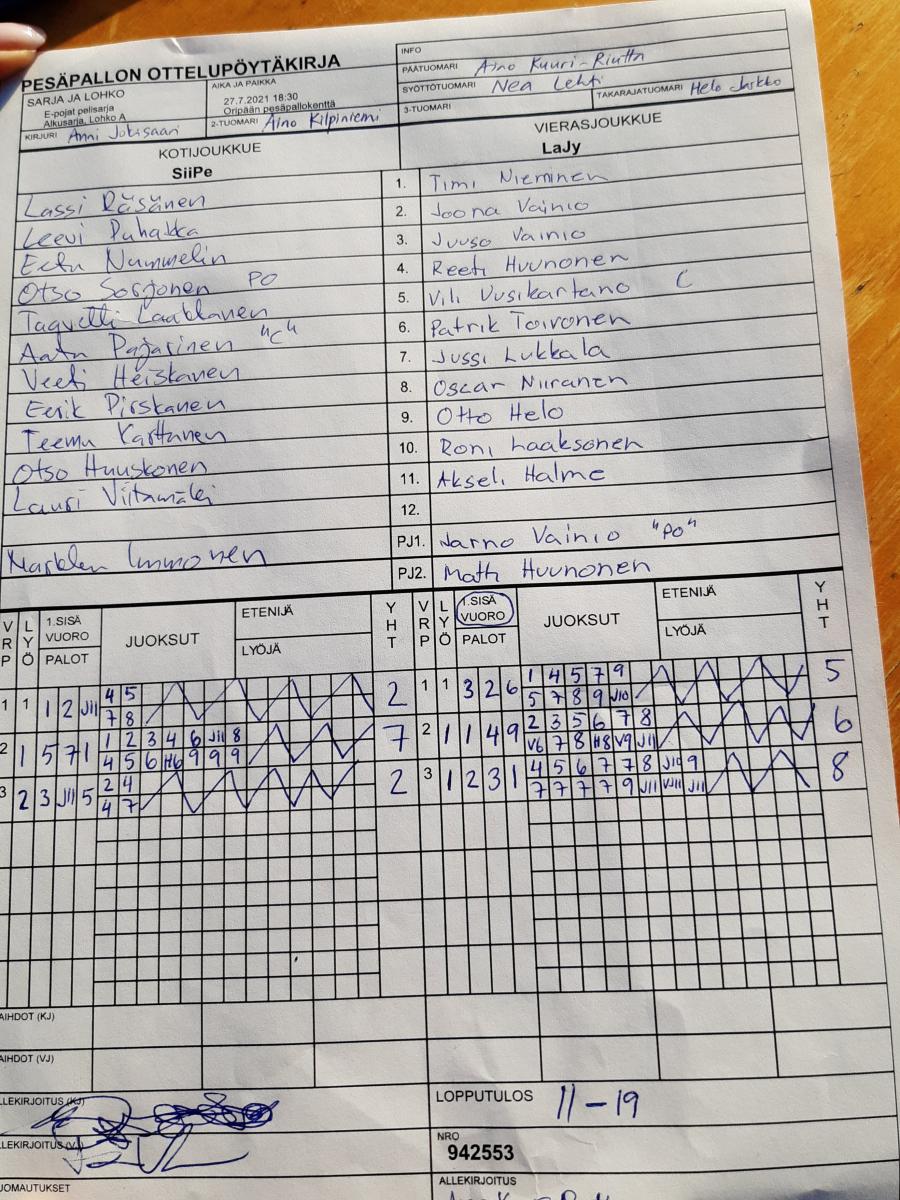 PESÄPALLON OTTELUPÖYTÄKIRJA
INFO
PÄÄTUOMARI Aino Kuuri-Riutta
SARJA JA LOHKO
E-pojat pelisarja
Alkusarja, Lohko A
AIKA JA PAIKKA
27.7.2021 18:30
Oripään pesäpallokenttä
SYÖTTÖTUOMARI Nea Lehti
KIRJURI Anni Jokisaari
2-TUOMARI Aino Kilpiniemi
3-TUOMARI
TAKARAJATUOMARI Helo
KOTIJOUKKUE
SiiPe
VIERASJOUKKUE
LaJy
Lassi Räsänen 1. Timi Nieminen
Leevi Puhakka 2. Joona Vainio
Eetu Nummelin 3. Juuso Vainio
Otso Sorjonen PO 4. Reeti Huunonen
Laablanen 5. Vili Uusikartano C
Aatu Pajarinen "C" 6. Patrik Toivonen
Veeti Heiskanen 7. Jussi Lukkala
Eerik Pirskanen 8. Oscar Niiranen
Teemu Karttunen 9. Otto Helo
Otso Huuskonen 10. Roni Laaksonen
Lauri Viitamäki 11. Akseli Halme
12.
Immonen PJ1. Jarno Vainio "PO"
PJ2. Huunonen
VRP LYÖ 1.SISÄ VUORO PALOT JUOKSUT ETENIJÄ LYÖJÄ YHT VRP LYÖ 1.SISÄ VUORO PALOT JUOKSUT ETENIJÄ LYÖJÄ YHT
1 1 1 2 J11 4 5 2 1 1 3 2 6 1 4 5 7 9 5
7 8 5 7 8 9 J10
2 1 5 7 1 1 2 3 4 6 J11 8 7 2 1 1 4 9 2 3 5 6 7 8 6
4 5 6 H6 9 9 9 V6 7 8 H8 V9 J11
3 2 3 J11 5 2 4 2 3 1 2 3 1 4 5 6 7 7 8 J10 9 8
4 7 7 7 7 7 9 J11 VJ11 J11
AIHDOT (KJ)
AIHDOT (VJ)
LLEKIRJOITUS (KJ)
LOPPUTULOS 11-19
LLEKIRJOITUS (VJ)
NRO
942553
UOMAUTUKSET
ALLEKIRJOITUS